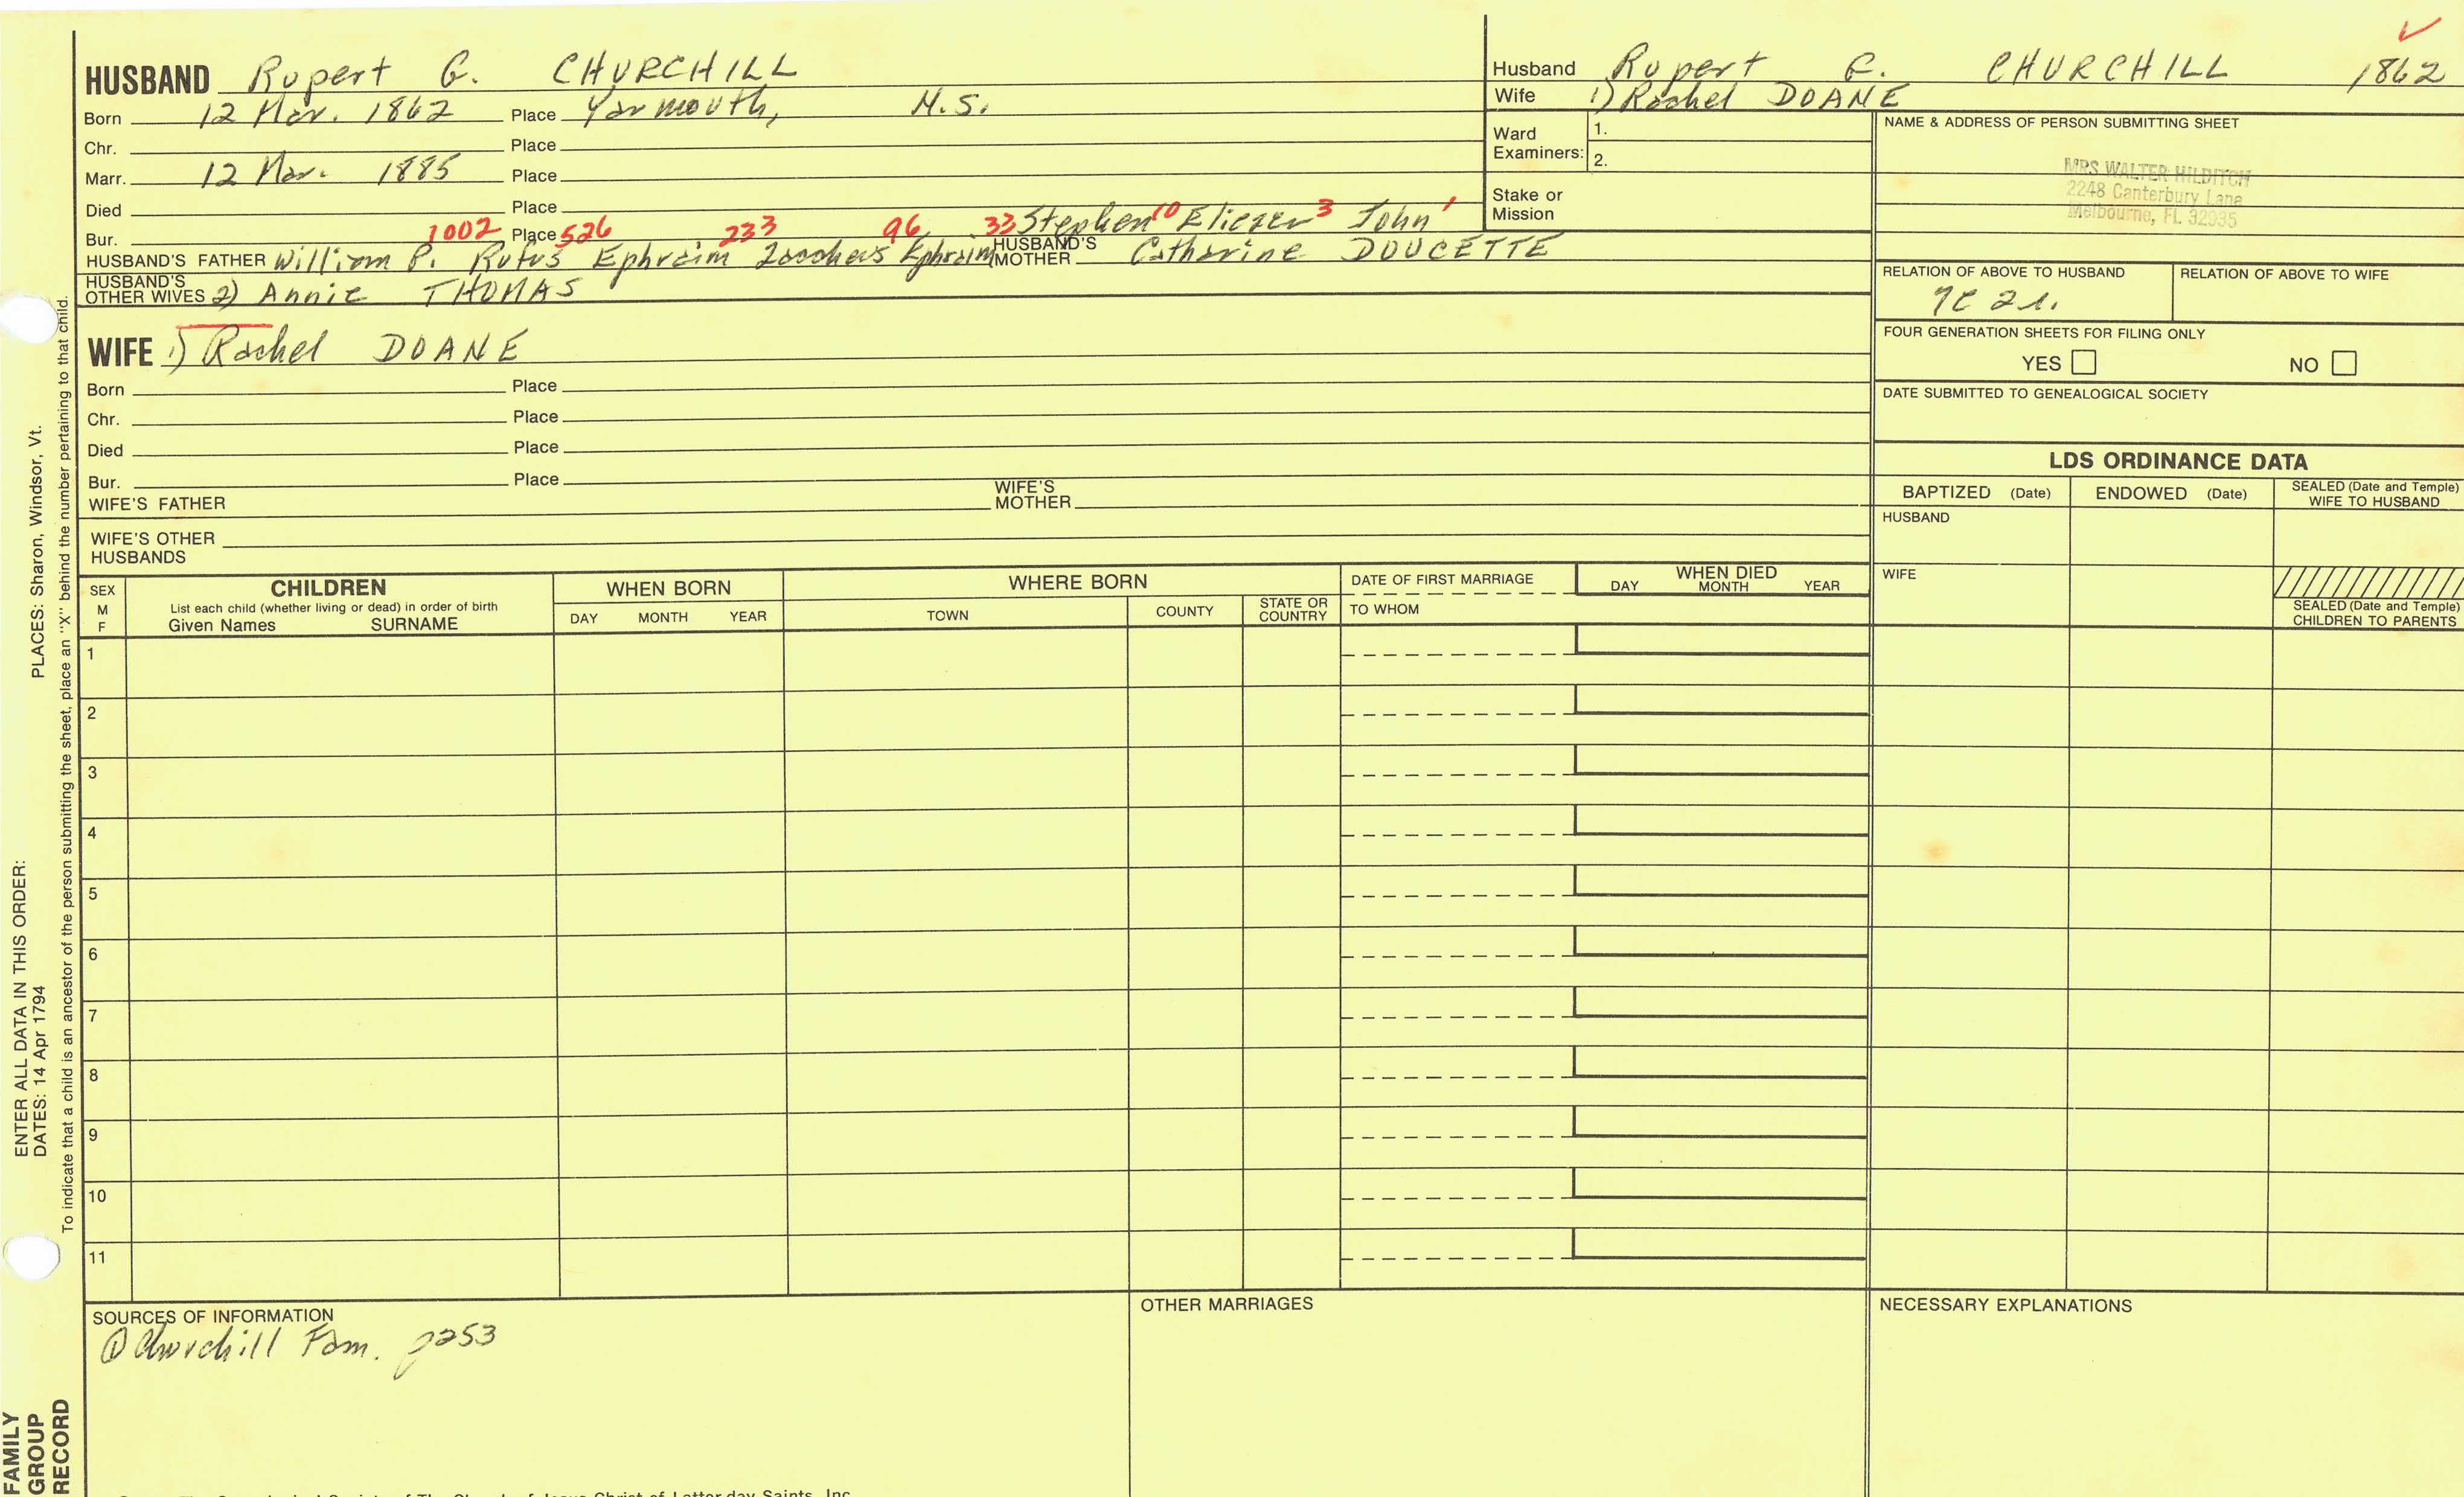 HUSBAND Rupert G. CHURCHILL
Born 12 Mar. 1862 Place Yarmouth, N.S.
Chr. Place
Marr. 12 Mar. 1885 Place
Died Place
Bur. Place
1002 526 233 96 33 Stephen 10 Eliezer 3 John 1
HUSBAND'S FATHER William P. Rufus Ephraim Ephraim HUSBAND'S MOTHER Catharine DOUCETTE
HUSBAND'S OTHER WIVES 2) Annie THOMAS
WIFE 1) Rachel DOANE
Born Place
Chr. Place
Died Place
Bur. Place
WIFE'S FATHER WIFE'S MOTHER
WIFE'S OTHER HUSBANDS
Husband Rupert G. CHURCHILL 1862
Wife 1) Rachel DOANE
Ward Examiners: 1.
2.
Stake or Mission
NAME & ADDRESS OF PERSON SUBMITTING SHEET
MRS WALTER HILDITCH
2248 Canterbury Lane
Melbourne, FL 32935
RELATION OF ABOVE TO HUSBAND RELATION OF ABOVE TO WIFE
FOUR GENERATION SHEETS FOR FILING ONLY
YES NO
DATE SUBMITTED TO GENEALOGICAL SOCIETY
LDS ORDINANCE DATA
BAPTIZED (Date) ENDOWED (Date) SEALED (Date and Temple) WIFE TO HUSBAND
HUSBAND
WIFE
SEALED (Date and Temple) CHILDREN TO PARENTS
SEX M F
CHILDREN
List each child (whether living or dead) in order of birth
Given Names SURNAME
WHEN BORN
DAY MONTH YEAR
WHERE BORN
TOWN COUNTY STATE OR COUNTRY
DATE OF FIRST MARRIAGE
TO WHOM
WHEN DIED
DAY MONTH YEAR
1
2
3
4
5
6
7
8
9
10
11
SOURCES OF INFORMATION
① Churchill Fam. p253
OTHER MARRIAGES
NECESSARY EXPLANATIONS
ENTER ALL DATA IN THIS ORDER:
DATES: 14 Apr 1794 PLACES: Sharon, Windsor, Vt.
To indicate that a child is an ancestor of the person submitting the sheet, place an "X" behind the number pertaining to that child.
FAMILY
GROUP
RECORD